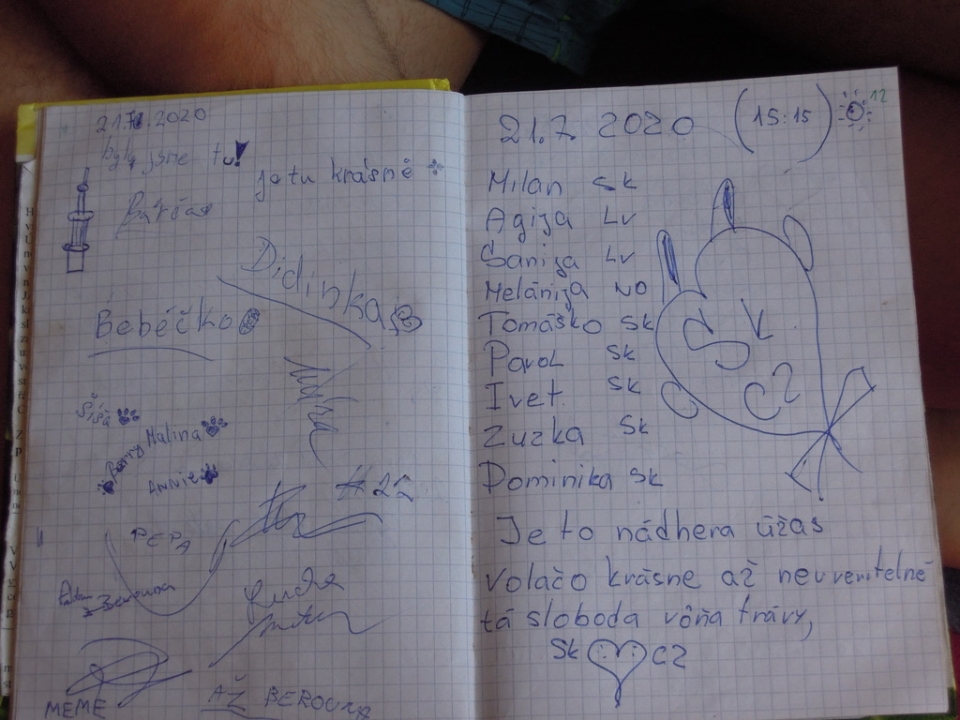 21.7.2020
byly jsme tu!
je tu krásně
Didinka
Bebéčko
Šíša
Malina
Barry
ANNIE
#22
PEPA
MEME
AŽ BEROUNA
21.7. 2020 (15:15) 12
Milan SK
Agija LV
Sanija LV
Melánija NO
Tomáško SK
Pavol SK
Ivet SK
Zuzka SK
Dominika SK
LV
CZ
Je to nádhera úžas
volačo krásne až neuveriteľné
tá sloboda vôňa trávy,
SK CZ